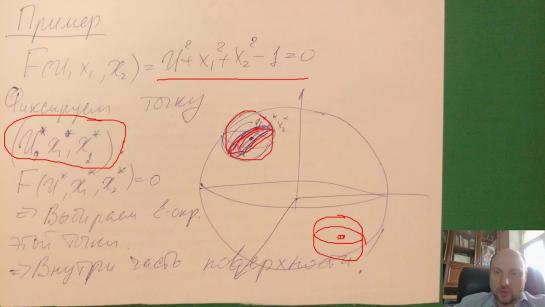 Пример
F(u, x₁, x₂) = u² + x₁² + x₂² - 1 = 0
Фиксируем точку
(u*, x₁*, x₂*)
F(u*, x₁*, x₂*) = 0
⇒ Выбираем ε-окр.
этой точки.
⇒ Внутри часть поверхности.
x₂*